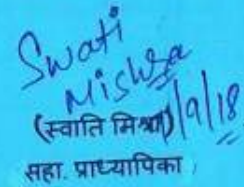 Swati
Mishra
(स्वाति मिश्रा) 1/9/18
सहा. प्राध्यापिका